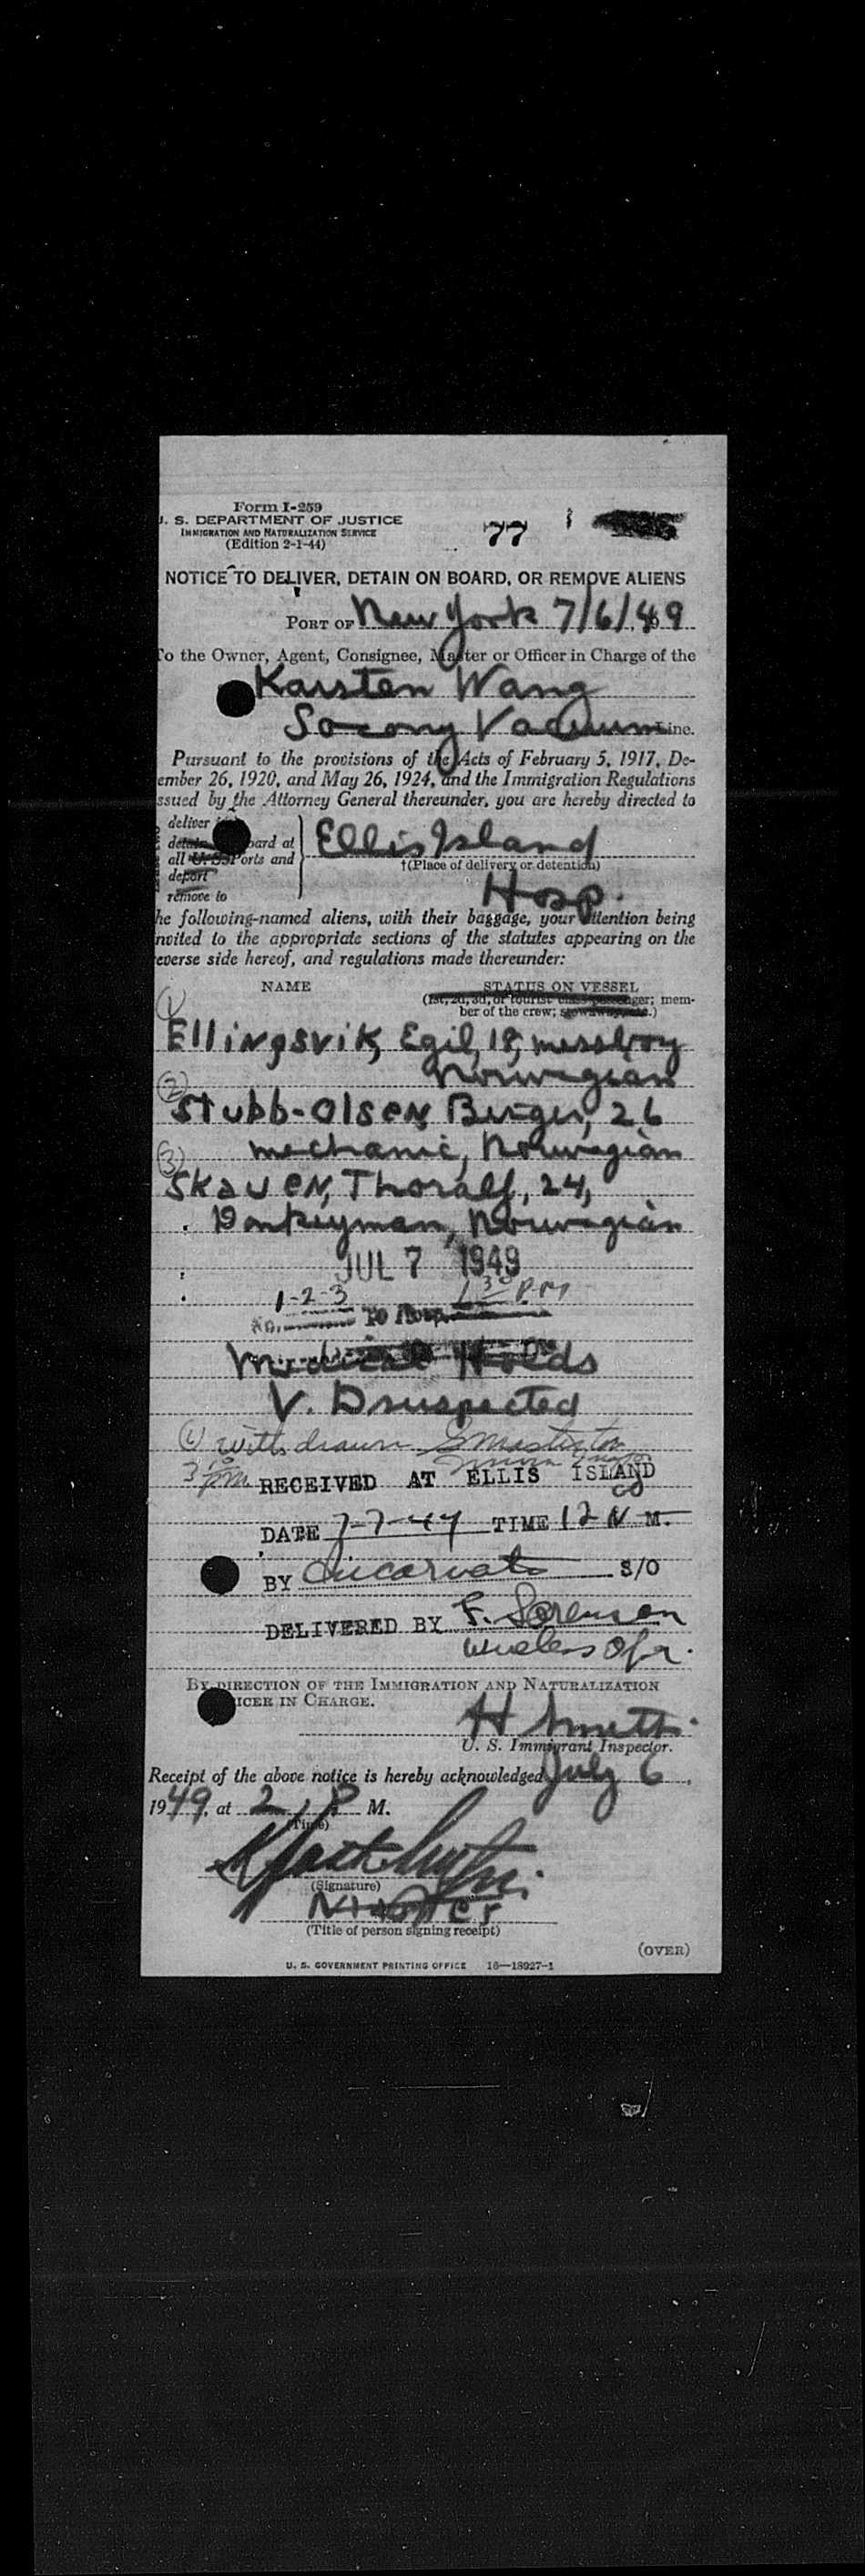 Form I-259
U. S. DEPARTMENT OF JUSTICE
IMMIGRATION AND NATURALIZATION SERVICE
(Edition 2-1-44)
77
NOTICE TO DELIVER, DETAIN ON BOARD, OR REMOVE ALIENS
PORT OF New York 7/6/, 49
To the Owner, Agent, Consignee, Master or Officer in Charge of the
Karsten Wang
Socony Vacuum Line.
Pursuant to the provisions of the Acts of February 5, 1917, De-
ember 26, 1920, and May 26, 1924, and the Immigration Regulations
ssued by the Attorney General thereunder, you are hereby directed to
deliver
detain board at Ellis Island
all U. S. Ports and †(Place of delivery or detention)
deport Hosp.
remove to
he following-named aliens, with their baggage, your attention being
nvited to the appropriate sections of the statutes appearing on the
everse side hereof, and regulations made thereunder:
NAME STATUS ON VESSEL
(1st, 2d, 3d, or tourist class passenger; mem-
ber of the crew; stowaway, etc.)
(1)
Ellingsvik, Egil, 18, messboy
Norwegian
(2)
Stubb-Olsen, Birger, 26
mechanic, Norwegian
(3)
Skauen, Thoralf, 24,
Donkeyman, Norwegian
JUL 7 1949
1-2-3 1 30 P.M
No. To Hosp.
Medical Holds
V. D suspected
(1) Withdrawn
3 10 PM. RECEIVED AT ELLIS ISLAND
DATE 7-7-49 TIME 12 N M.
BY S/O
DELIVERED BY F. Sorensen
Wireless Opr.
BY DIRECTION OF THE IMMIGRATION AND NATURALIZATION
ICER IN CHARGE.
H
U. S. Immigrant Inspector.
Receipt of the above notice is hereby acknowledged July 6,
1949, at 2 P M.
(Time)
(Signature)
Master
(Title of person signing receipt)
(OVER)
U. S. GOVERNMENT PRINTING OFFICE 16—18927-1